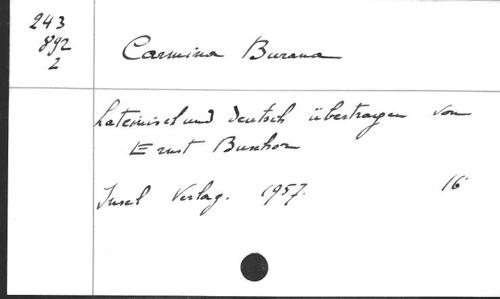 243
892
2
Carmina Burana
Lateinisch und deutsch übertragen von
Ernst Buschor
Insel Verlag. 1957. 16°